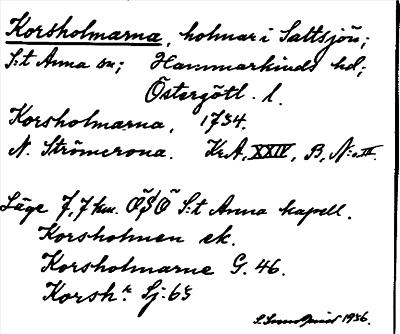 Korsholmarna, holmar i Saltsjön;
S:t Anna sn; Hammarkinds hd;
Östergötl. l.
Korsholmarna, 1734.
N. Strömcrona. KrA, XXIV, B, N:o
Läge 7,7 km. ÖSÖ S:t Anna kapell.
Korsholmen ek.
Korsholmarne G. 46.
Korsh. Sj. 63
1936.